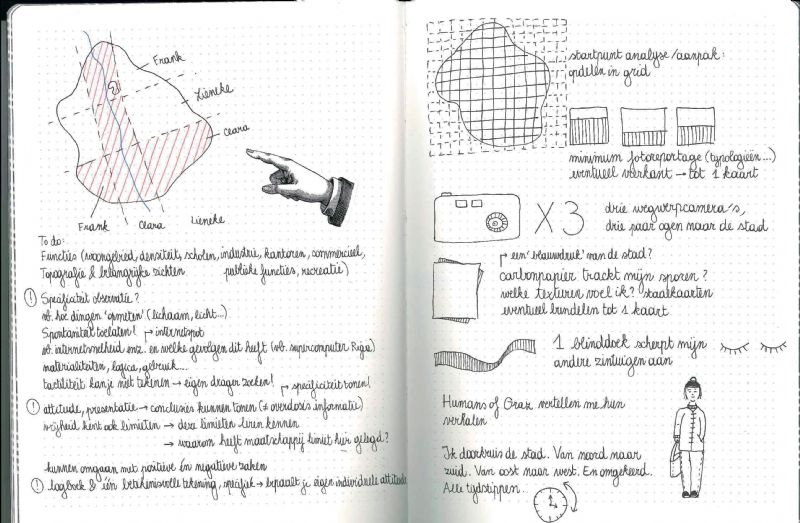 Frank
Lieneke
Clara
Frank
Clara
Lieneke
To do:
Functies (woongebied, densiteit, scholen, industrie, kantoren, commercieel,
Topografie & belangrijke zichten
publieke functies, recreatie)
! Specificiteit observatie?
vb. hoe dingen 'opmeten' (lichaam, licht...)
Spontaniteit toelaten! → internetspot
vb. internetsnelheid enz. en welke gevolgen dit heeft (vb. supercomputer Riga)
materialiteiten, logica, gebruik...
tactiliteit kan je niet tekenen → eigen drager zoeken! → specificiteit tonen!
! attitude, presentatie → conclusies kunnen tonen (≠ overdosis informatie)
vrijheid kent ook limieten → deze limieten leren kennen
→ waarom heeft maatschappij limiet hier gelegd?
kunnen omgaan met positieve én negatieve zaken
! logboek & één betekenisvolle tekening, specifiek → bepaalt je eigen individuele attitude
startpunt analyse/aanpak:
opdelen in grid
minimum fotoreportage (typologieën...)
eventueel vierkant → tot 1 kaart
X 3
drie wegwerpcamera's,
drie paar ogen naar de stad
→ een 'blauwdruk' van de stad?
carbonpapier trackt mijn sporen?
welke texturen voel ik? staalkaarten
eventueel bundelen tot 1 kaart
1 blinddoek scherpt mijn
andere zintuigen aan
Humans of Graz vertellen me hun
verhalen
Ik doorkruis de stad. Van noord naar
zuid. Van oost naar west. En omgekeerd.
Alle tijdstippen.